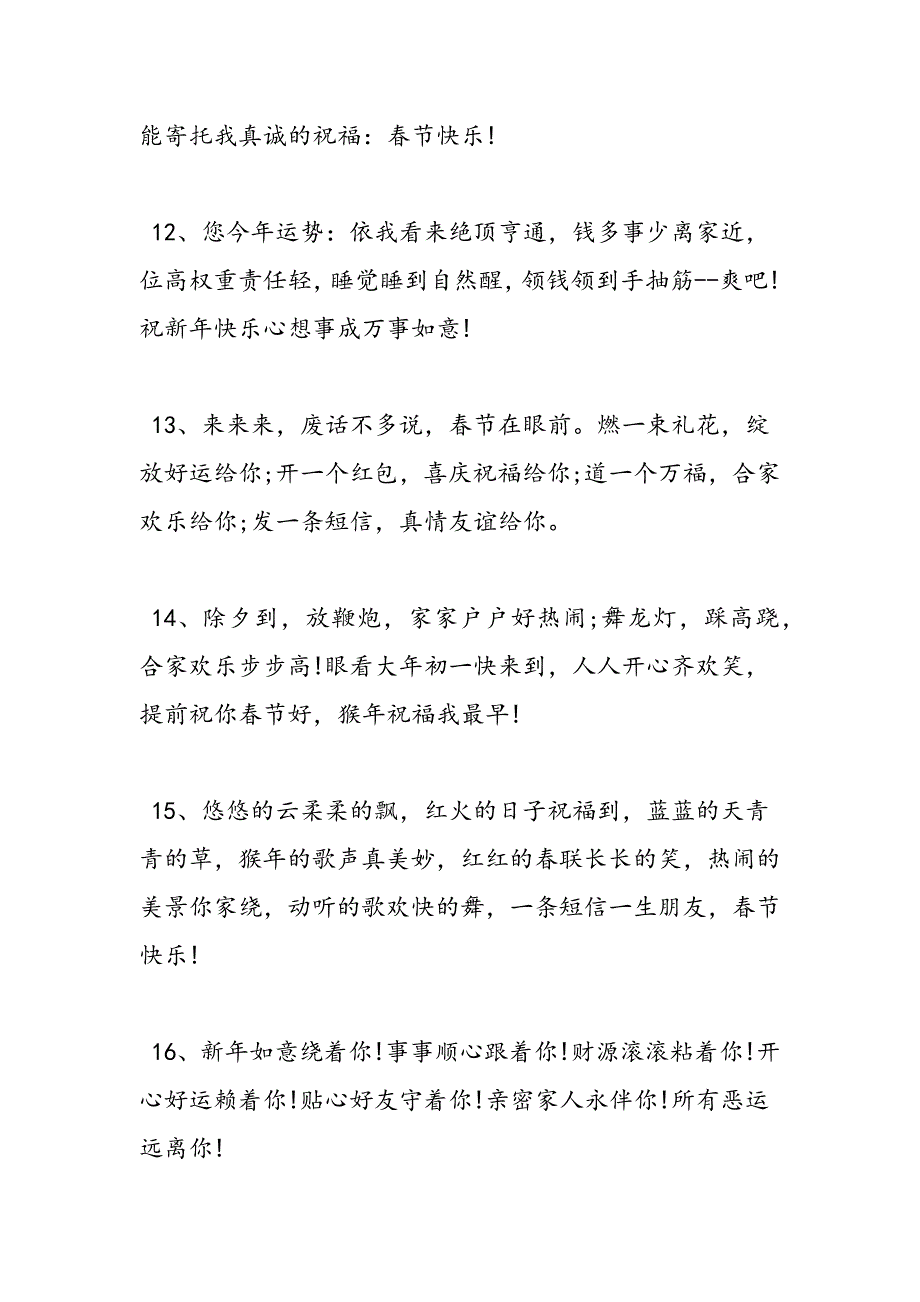 能寄托我真诚的祝福：春节快乐!
12、您今年运势：依我看来绝顶亨通，钱多事少离家近，
位高权重责任轻，睡觉睡到自然醒，领钱领到手抽筋--爽吧!
祝新年快乐心想事成万事如意!
13、来来来，废话不多说，春节在眼前。燃一束礼花，绽
放好运给你;开一个红包，喜庆祝福给你;道一个万福，合家
欢乐给你;发一条短信，真情友谊给你。
14、除夕到，放鞭炮，家家户户好热闹;舞龙灯，踩高跷，
合家欢乐步步高!眼看大年初一快来到，人人开心齐欢笑，
提前祝你春节好，猴年祝福我最早!
15、悠悠的云柔柔的飘，红火的日子祝福到，蓝蓝的天青
青的草，猴年的歌声真美妙，红红的春联长长的笑，热闹的
美景你家绕，动听的歌欢快的舞，一条短信一生朋友，春节
快乐!
16、新年如意绕着你!事事顺心跟着你!财源滚滚粘着你!开
心好运赖着你!贴心好友守着你!亲密家人永伴你!所有恶运
远离你!